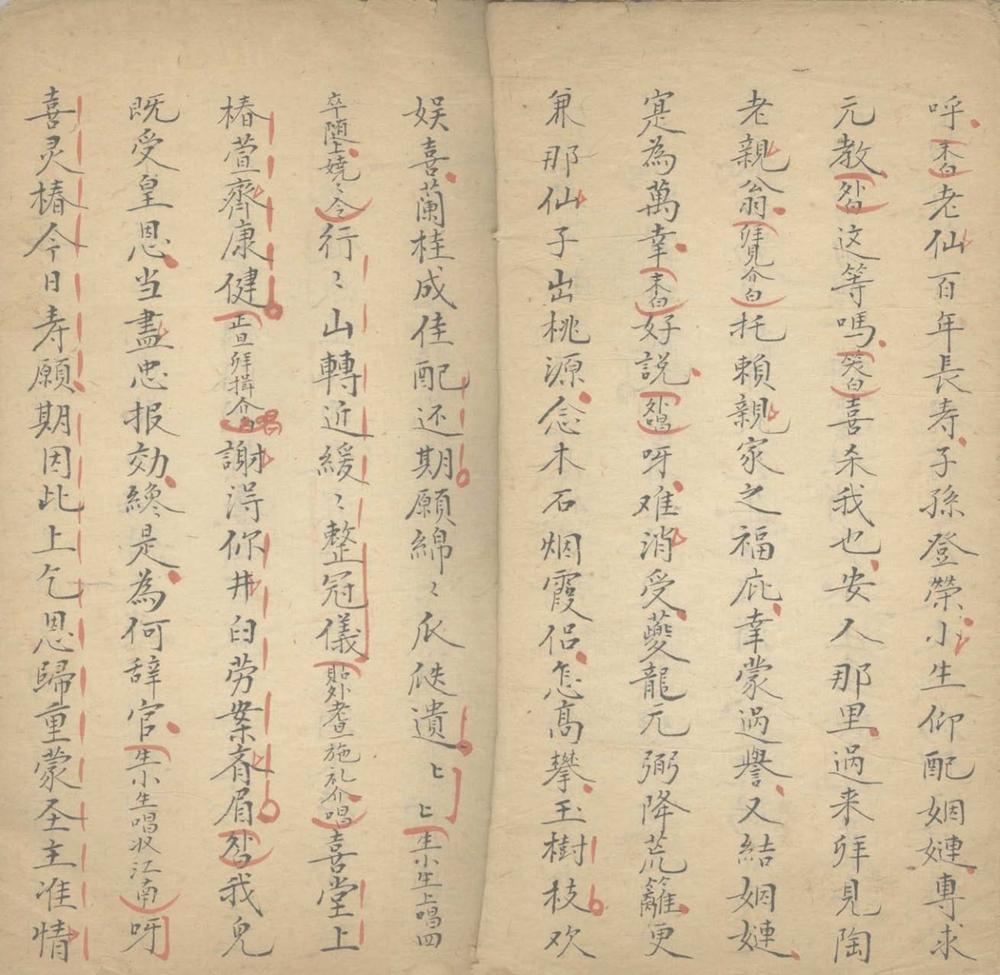 呼末白老仙百年長寿子孫登榮小生仰配姻嫀專求
元教外白这等嗎笑白喜杀我也安人那里过来拜見陶
老親翁拜見介白托賴親家之福庇幸蒙过譽又結姻嫀
寔為萬幸末白好説外唱呀难消受夔龍元弼降荒籬更
兼那仙子出桃源念木石烟霞侣怎高攀玉樹枝欢
娱喜蘭桂成佳配还期願綿〻瓜瓞遺匕匕生小生上唱四
行〻山轉近緩〻整冠儀貼外老旦施礼介唱喜堂上
椿萱齊康健正旦拜揖介唱謝淂你井臼劳案齐眉外白我児
既受皇恩当盡忠报効纔是為何辞官生小生唱收江南呀
喜灵椿今日寿願期因此上乞恩歸重蒙圣主准情